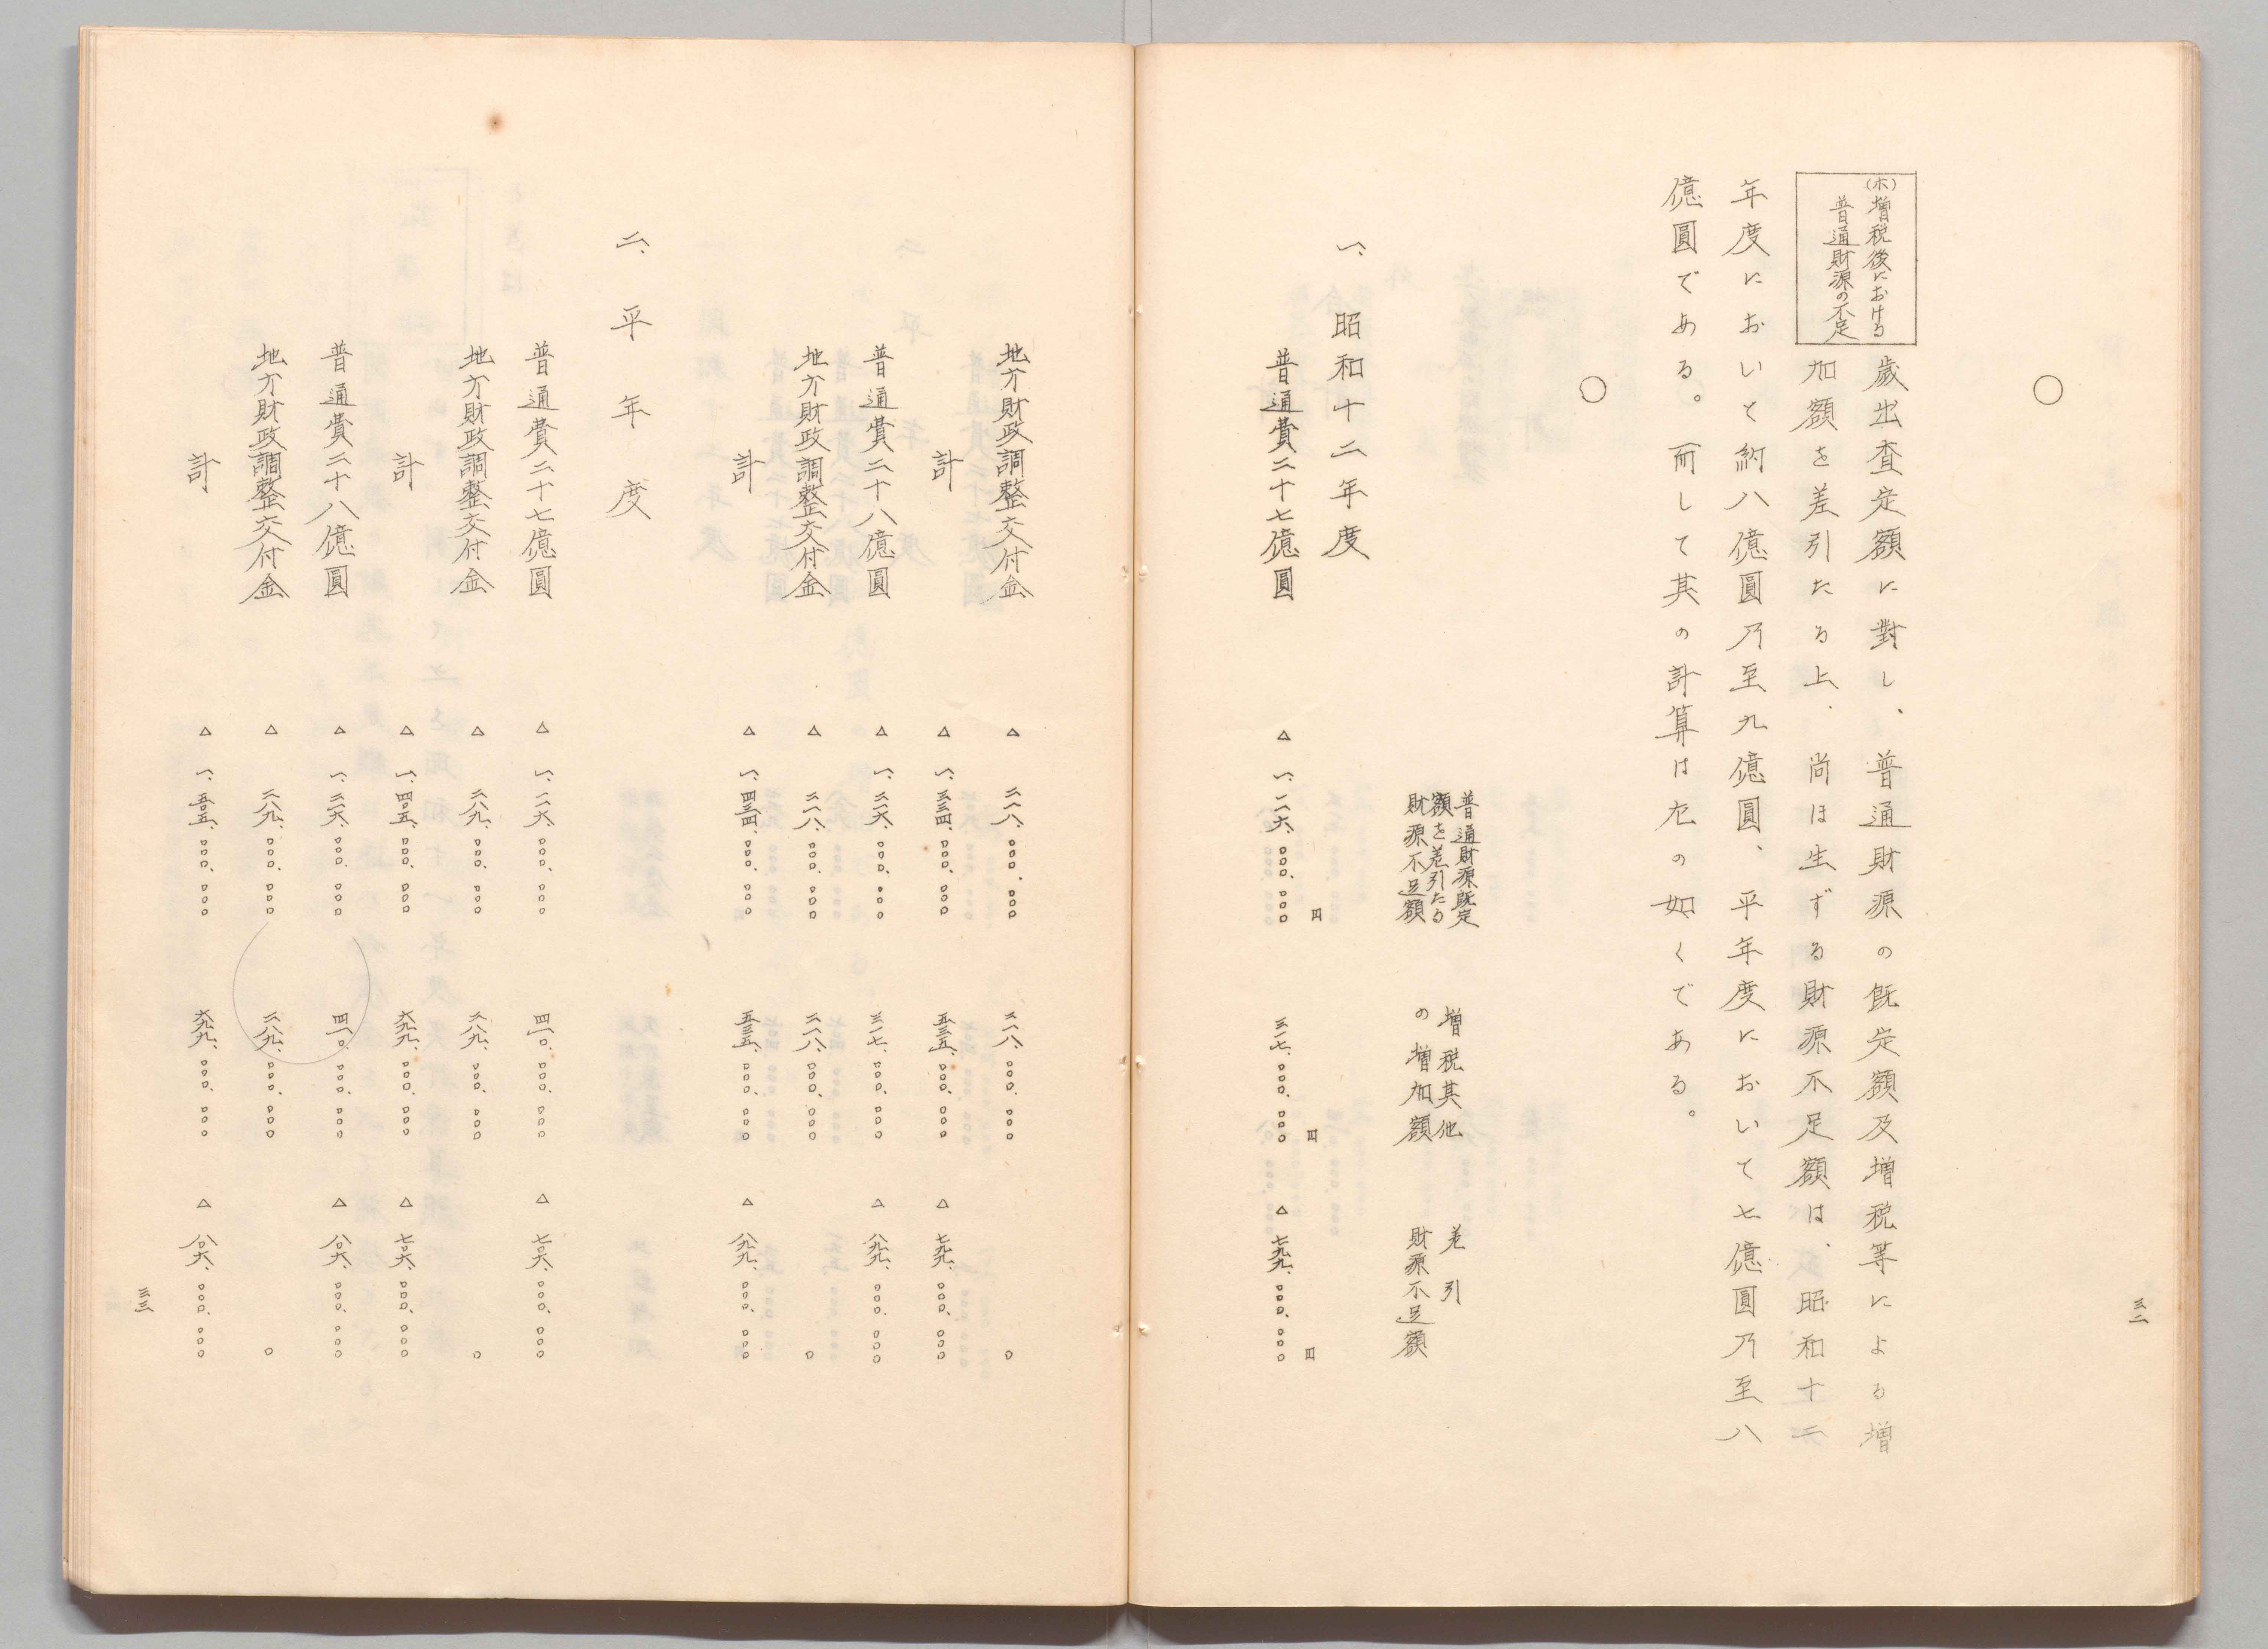 三二
○
(ホ)増税後における
普通財源の不足
歳出査定額に對し、普通財源の既定額及増税等による増
加額を差引たる上、尚ほ生ずる財源不足額は、昭和十二
年度において約八億圓乃至九億圓、平年度において七億圓乃至八
億圓である。而して其の計算は左の如くである。
○
普通財源既定
額を差引たる
財源不足額
増税其他
の増加額
差引
財源不足額
一、昭和十二年度
円 円 円
普通費二十七億圓 △一、一一六、〇〇〇、〇〇〇 三一七、〇〇〇、〇〇〇 △七九九、〇〇〇、〇〇〇
地方財政調整交付金 △二一八、〇〇〇、〇〇〇 二一八、〇〇〇、〇〇〇 〇
計 △一、三三四、〇〇〇、〇〇〇 五三五、〇〇〇、〇〇〇 △七九九、〇〇〇、〇〇〇
普通費二十八億圓 △一、二一六、〇〇〇、〇〇〇 三一七、〇〇〇、〇〇〇 △八九九、〇〇〇、〇〇〇
地方財政調整交付金 △二一八、〇〇〇、〇〇〇 二一八、〇〇〇、〇〇〇 〇
計 △一、四三四、〇〇〇、〇〇〇 五三五、〇〇〇、〇〇〇 △八九九、〇〇〇、〇〇〇
二、平年度
普通費二十七億圓 △一、一一六、〇〇〇、〇〇〇 四一〇、〇〇〇、〇〇〇 △七〇六、〇〇〇、〇〇〇
地方財政調整交付金 △二八九、〇〇〇、〇〇〇 二八九、〇〇〇、〇〇〇 〇
計 △一、四〇五、〇〇〇、〇〇〇 六九九、〇〇〇、〇〇〇 △七〇六、〇〇〇、〇〇〇
普通費二十八億圓 △一、二一六、〇〇〇、〇〇〇 四一〇、〇〇〇、〇〇〇 △八〇六、〇〇〇、〇〇〇
地方財政調整交付金 △二八九、〇〇〇、〇〇〇 二八九、〇〇〇、〇〇〇 〇
計 △一、五〇五、〇〇〇、〇〇〇 六九九、〇〇〇、〇〇〇 △八〇六、〇〇〇、〇〇〇
三三